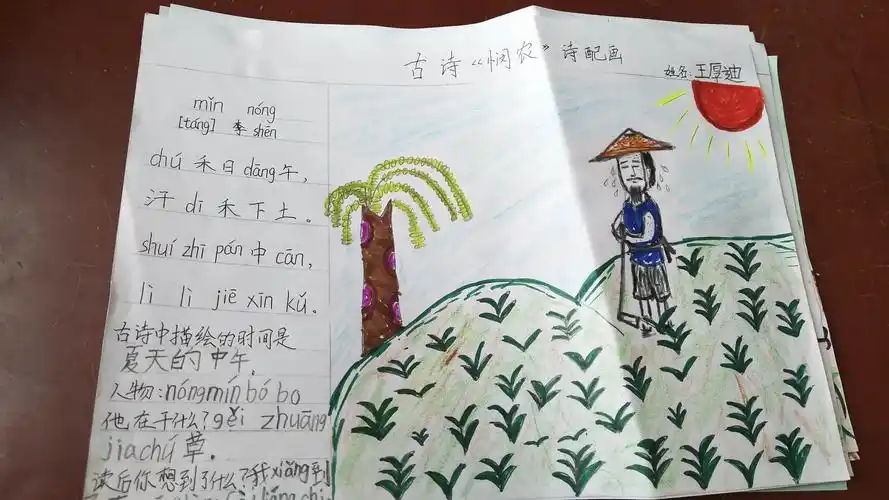 古诗“悯农”诗配画
姓名:王厚迪
mǐn nóng
[táng] 李 shēn
chú 禾日 dāng 午,
汗 dī 禾下土。
shuí zhī pán 中 cān,
lì lì jiē xīn kǔ。
古诗中描绘的时间是
夏天的中午.
人物:nóngmín bó bo
他在干什么?gěi zhuāng
jia chú 草.
读后你想到了什么?我xiǎng到